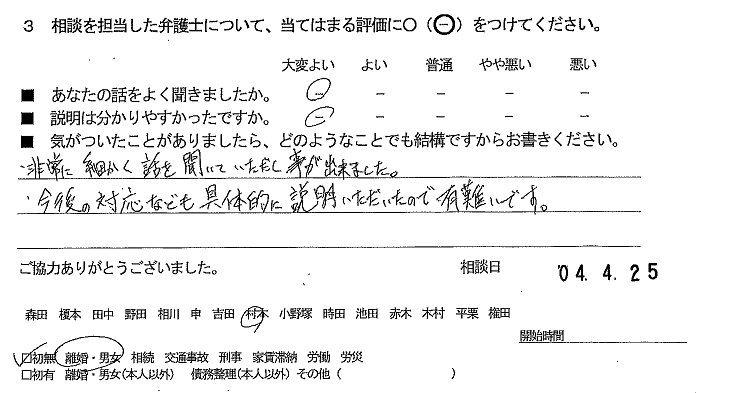 3 相談を担当した弁護士について、当てはまる評価に○（㊀）をつけてください。
大変よい よい 普通 やや悪い 悪い
■ あなたの話をよく聞きましたか。 － － － － －
■ 説明は分かりやすかったですか。 － － － － －
■ 気がついたことがありましたら、どのようなことでも結構ですからお書きください。
・非常に細かく話を聞いていただく事が出来ました。
・今後の対応なども具体的に説明いただいたので有難いです。
ご協力ありがとうございました。 相談日 '04. 4. 25
森田 榎本 田中 野田 相川 申 吉田 村本 小野塚 時田 池田 赤木 木村 平栗 権田
開始時間
□初無 離婚・男女 相続 交通事故 刑事 家賃滞納 労働 労災
□初有 離婚・男女(本人以外) 債務整理(本人以外) その他 ( )